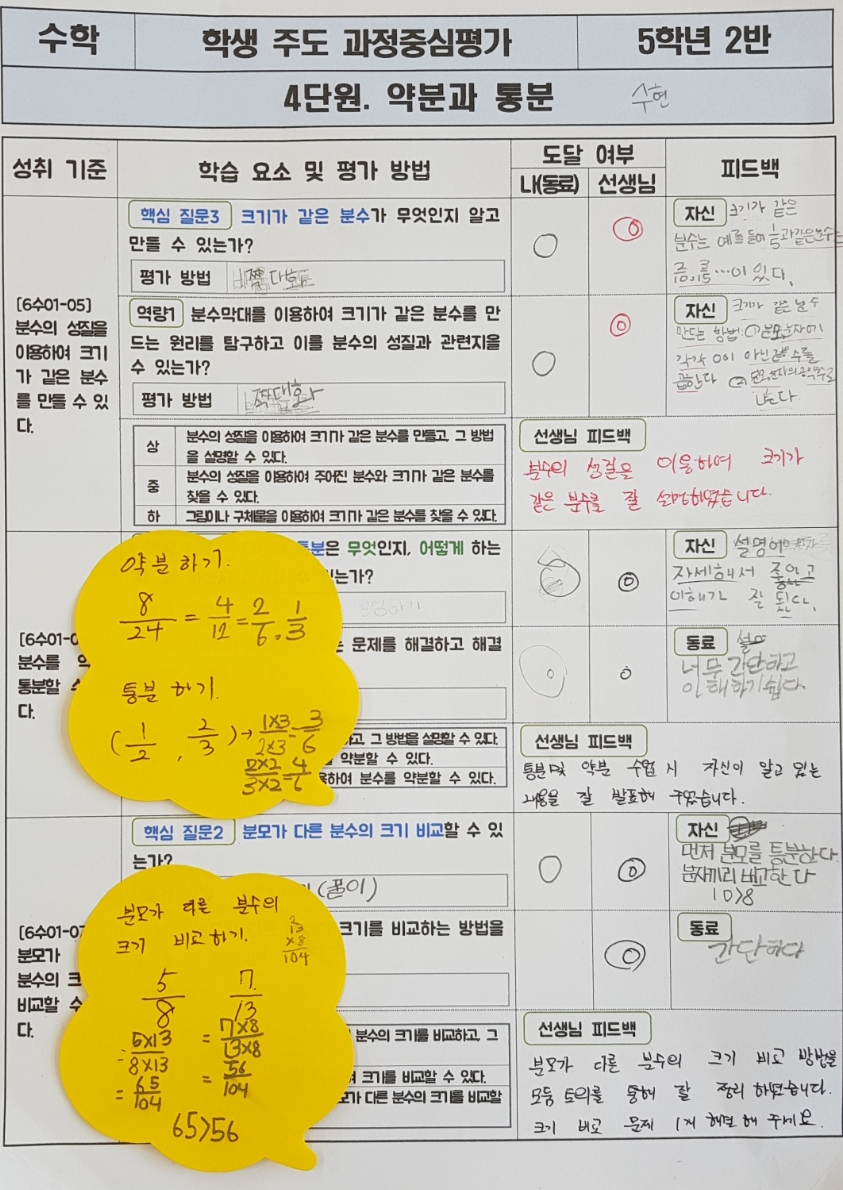 수학
학생 주도 과정중심평가
5학년 2반
4단원. 약분과 통분
수현
성취 기준
학습 요소 및 평가 방법
도달 여부
나(동료)
선생님
피드백
[6수01-05]
분수의 성질을
이용하여 크기
가 같은 분수
를 만들 수 있
다.
핵심 질문3 크기가 같은 분수가 무엇인지 알고
만들 수 있는가?
평가 방법 짝대화
자신 크기가 같은
분수는 예를 들어 1/5과 같은 분수는
2/10, 3/15 …이 있다.
역량1 분수막대를 이용하여 크기가 같은 분수를 만
드는 원리를 탐구하고 이를 분수의 성질과 관련지을
수 있는가?
평가 방법 짝대화
자신 크기가 같은 분수
만드는 방법: ① 분모, 분자에
각각 0이 아닌 같은 수를
곱한다 ② 분모, 분자의 공약수로
나눈다.
상 분수의 성질을 이용하여 크기가 같은 분수를 만들고, 그 방법
을 설명할 수 있다.
중 분수의 성질을 이용하여 주어진 분수와 크기가 같은 분수를
찾을 수 있다.
하 그림이나 구체물을 이용하여 크기가 같은 분수를 찾을 수 있다.
선생님 피드백
분수의 성질을 이용하여 크기가
같은 분수를 잘 설명하였습니다.
[6수01-0
분수를
통분할
다.
통분은 무엇인지, 어떻게 하는
는가?
설명하기
자신 설명이
자세해서 좋았고
이해가 잘 된다.
문제를 해결하고 해결
동료
너무 간단하고
이해하기 쉽다
고, 그 방법을 설명할 수 있다.
약분할 수 있다.
용하여 분수를 약분할 수 있다.
선생님 피드백
통분 및 약분 수업 시 자신이 알고 있는
내용을 잘 발표해 주었습니다.
약분하기.
8/24 = 4/12 = 2/6, 1/3
통분하기.
(1/2, 2/3) → 1×3/2×3 = 3/6
2×2/3×2 = 4/6
[6수01-07
분모가
분수의 크
비교할 수
다.
핵심 질문2 분모가 다른 분수의 크기 비교할 수 있
는가?
(풀이)
자신
먼저 분모를 통분한다.
분자끼리 비교한다
10>8
크기를 비교하는 방법을
동료
간단하다
분수의 크기를 비교하고, 그
크기를 비교할 수 있다.
모가 다른 분수의 크기를 비교할
선생님 피드백
분모가 다른 분수의 크기 비교 방법을
모둠 토의를 통해 잘 정리하였습니다.
크기 비교 문제 1개 해결해 주세요.
분모가 다른 분수의
크기 비교하기.
13
×8
104
5/8 7/13
= 5×13/8×13 = 7×8/13×8
= 65/104 = 56/104
65>56